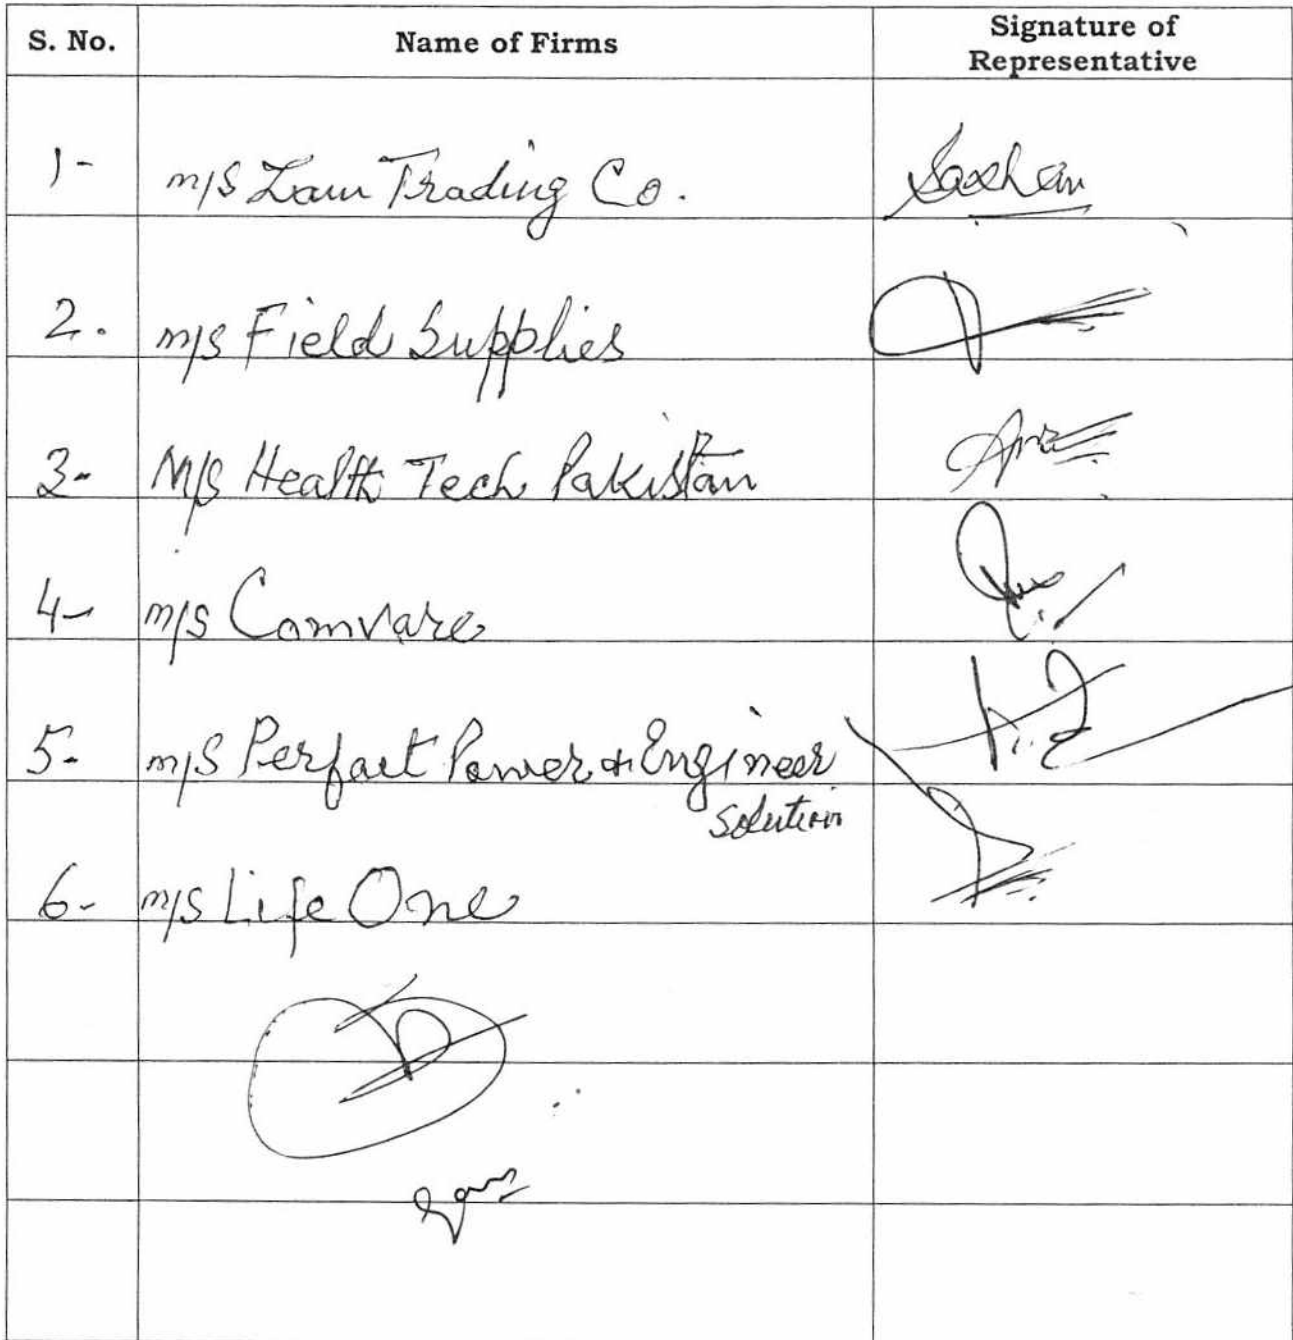 S. No. Name of Firms Signature of
Representative
1- m/s Zam Trading Co.
2. m/s Field Supplies
3- M/s Health Tech Pakistan
4- m/s Comvare
5- m/s Perfact Power & Engineer
solution
6- m/s Life One